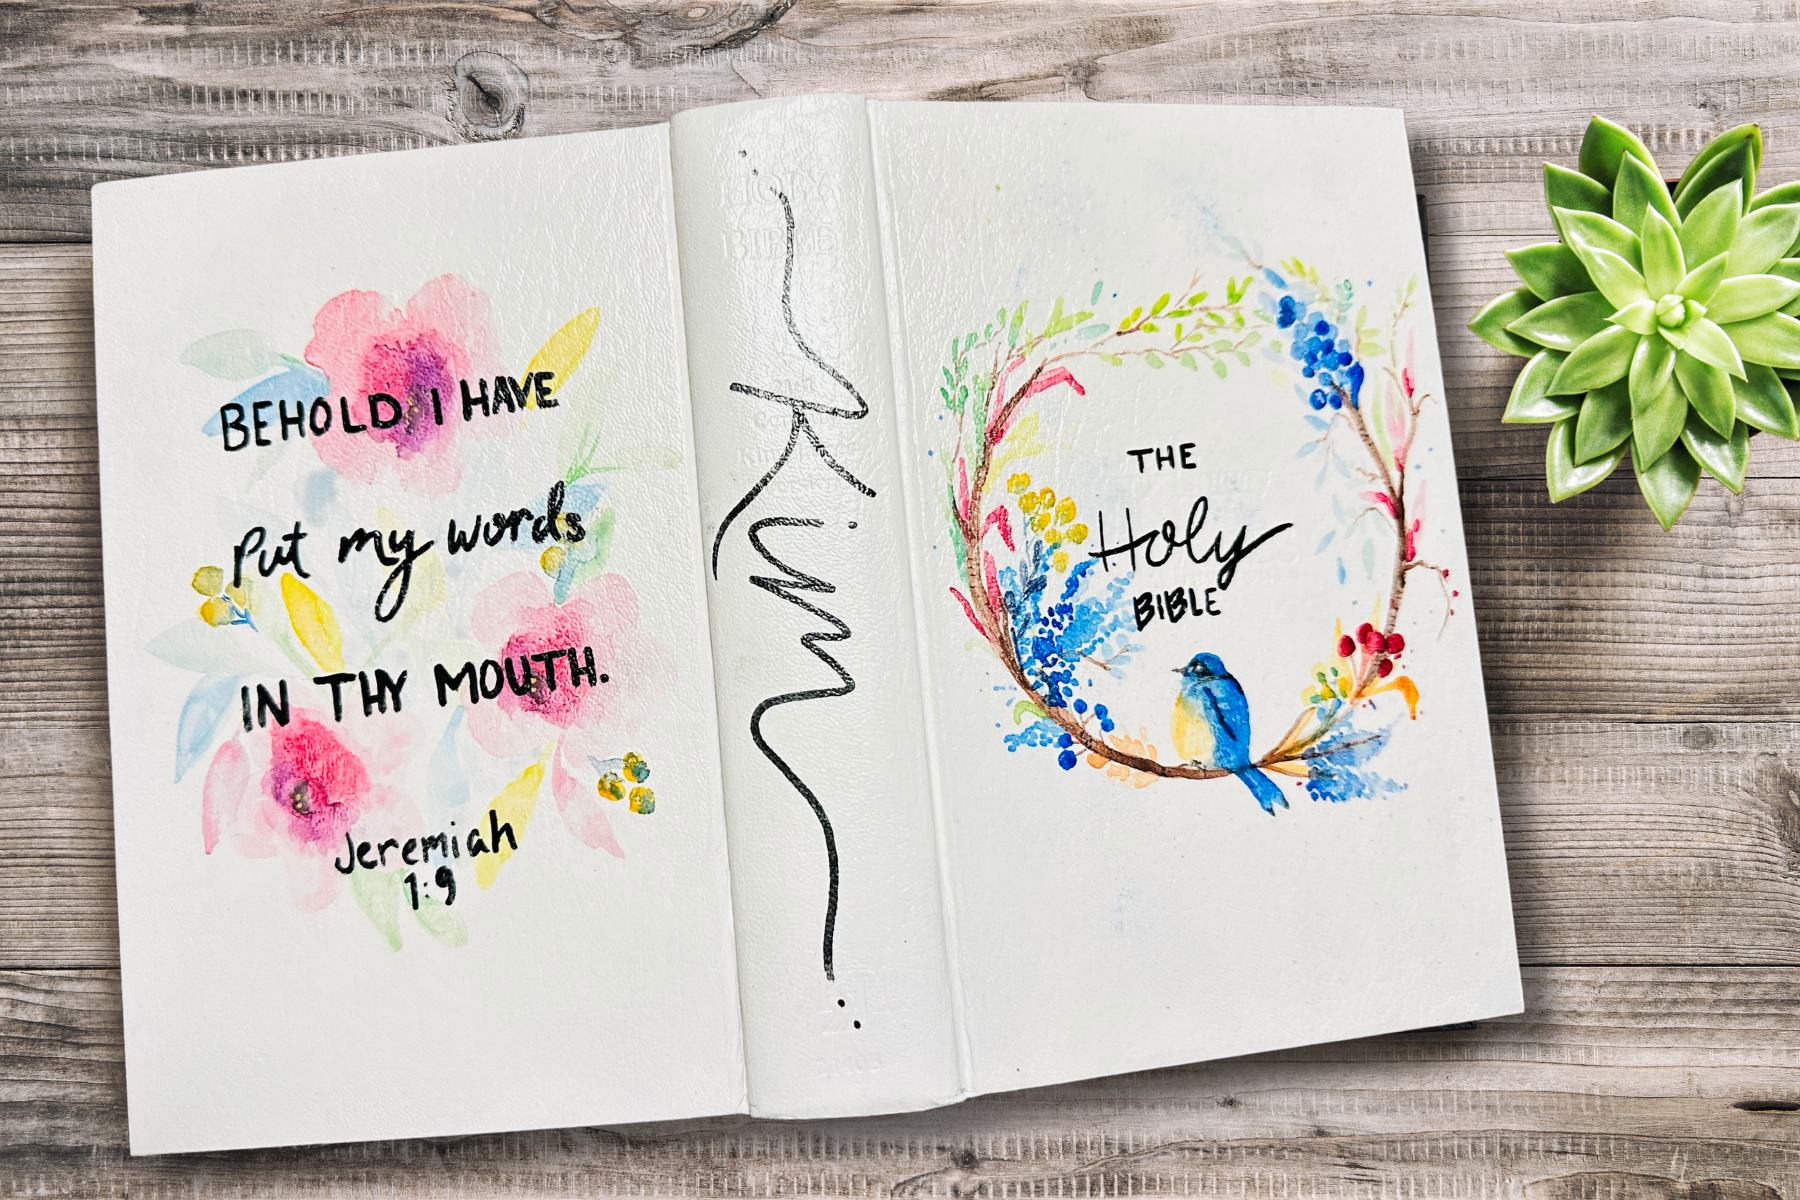 BEHOLD I HAVE
Put my words
IN THY MOUTH.
Jeremiah
1:9
HOLY
BIBLE
Kim
THE
Holy
BIBLE